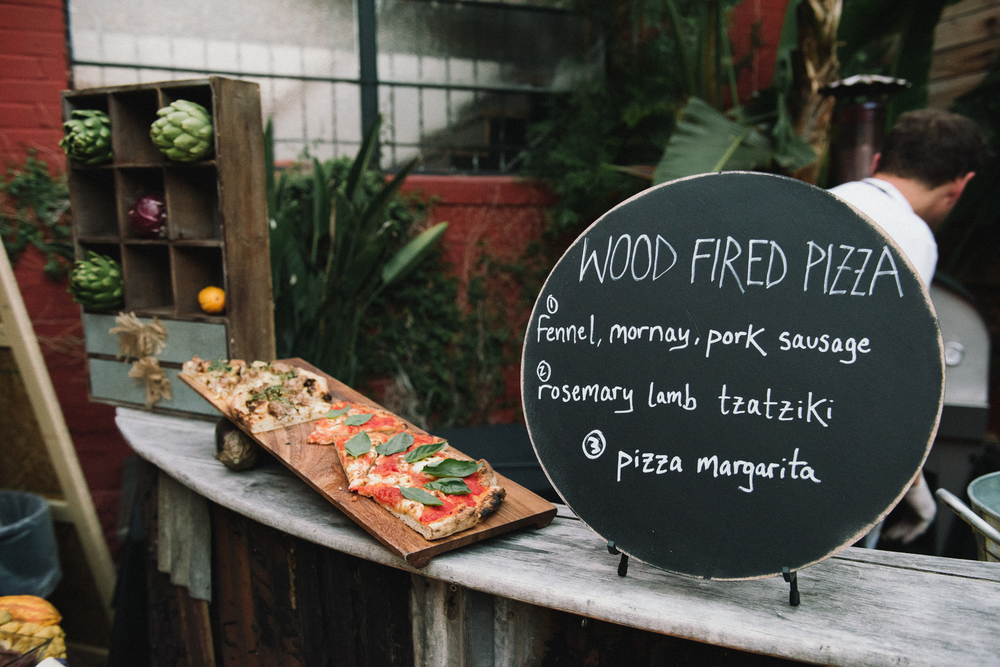 WOOD FIRED PIZZA
①
fennel, mornay, pork sausage
②
rosemary lamb tzatziki
③ pizza margarita